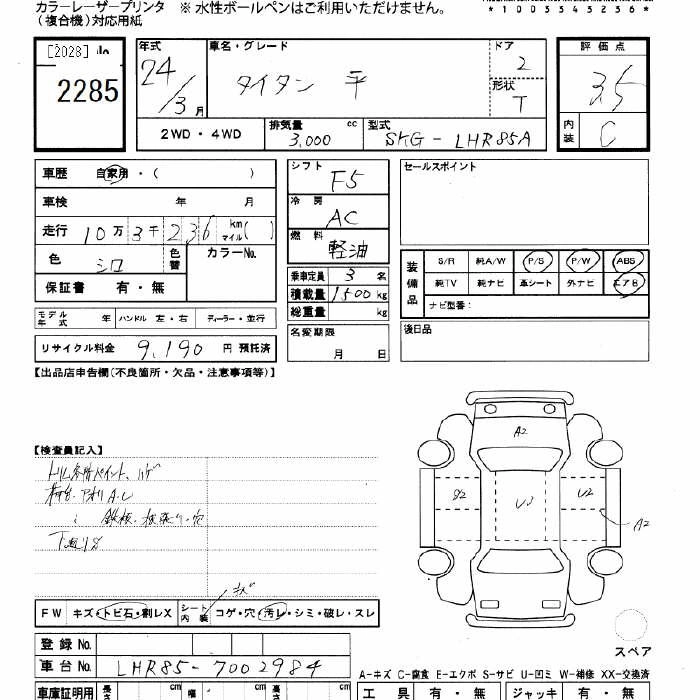 カラーレーザープリンタ ※ 水性ボールペンはご利用いただけません。
(複合機)対応用紙
*1003345236*
[2028]
2285
年式 車名・グレード ドア 評価点
24/3月 タイタン 平 2 3.5
形状 T
2WD・4WD 排気量 3,000 cc 型式 SKG-LHR85A 内装 C
車歴 自家用・( ) シフト F5 セールスポイント
車検 年 月 冷房 AC
走行 10万3千236 km マイル( ) 燃料 軽油
色 シロ 色替 カラーNo. 乗車定員 3名
保証書 有・無 積載量 1500kg
総重量 kg
装備品 S/R 純A/W P/S P/W ABS
純TV 純ナビ 革シート 外ナビ エアB
ナビ型番:
モデル年式 年 ハンドル 左・右 ディーラー・並行 名変期限 月 日 後日品
リサイクル料金 9,190 円 預託済
【出品店申告欄(不良箇所・欠品・注意事項等)】
【検査員記入】
A2
S2 U3 U2
A2
荷台、アオリA.U
鉄板、板張り、穴
下廻りS
FW キズ・トビ石・割レX シート内装 コゲ・穴・汚レ・シミ・破レ・スレ
スペア
登録No.
車台No. LHR85-7002984
A-キズ C-腐食 E-エクボ S-サビ U-凹ミ W-補修 XX-交換済
車庫証明用 長さ cm 幅 cm 高さ cm 工具 有・無 ジャッキ 有・無